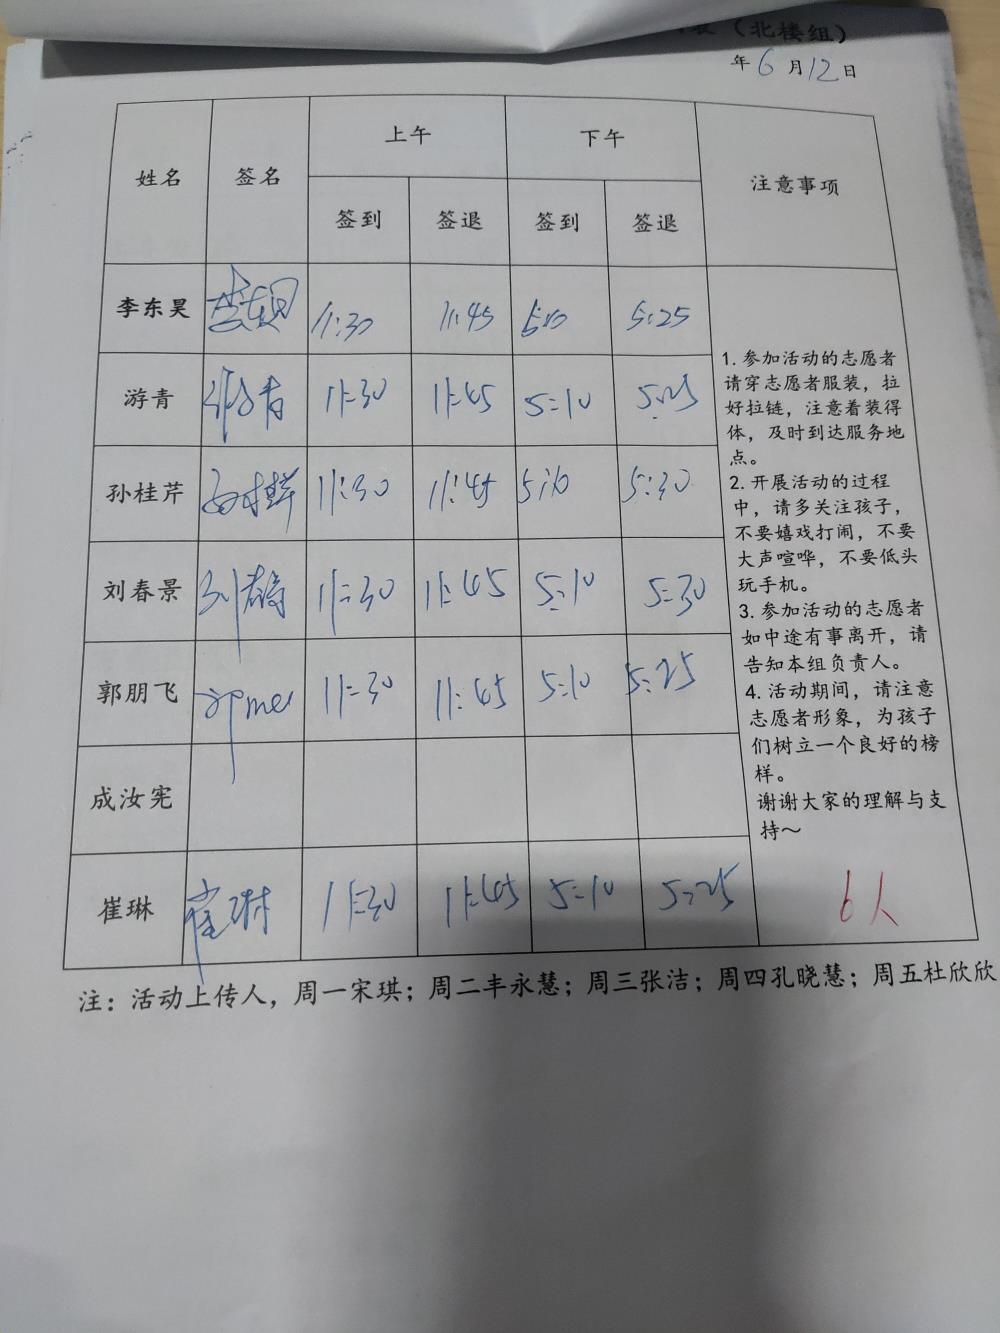 （北楼组）
年 6 月 12 日
姓名 签名 上午 下午 注意事项
签到 签退 签到 签退
李东昊 李东昊 11:30 11:45 5:10 5:25
游青 游青 11:30 11:45 5:10 5:25
孙桂芹 11:30 11:45 5:10 5:30
刘春景 刘春景 11:30 11:45 5:10 5:30
郭朋飞 11:30 11:45 5:10 5:25
成汝宪
崔琳 崔琳 11:30 11:45 5:10 5:25
1. 参加活动的志愿者
请穿志愿者服装，拉
好拉链，注意着装得
体，及时到达服务地
点。
2. 开展活动的过程
中，请多关注孩子，
不要嬉戏打闹，不要
大声喧哗，不要低头
玩手机。
3. 参加活动的志愿者
如中途有事离开，请
告知本组负责人。
4. 活动期间，请注意
志愿者形象，为孩子
们树立一个良好的榜
样。
谢谢大家的理解与支
持～
6人
注：活动上传人，周一宋琪；周二丰永慧；周三张洁；周四孔晓慧；周五杜欣欣